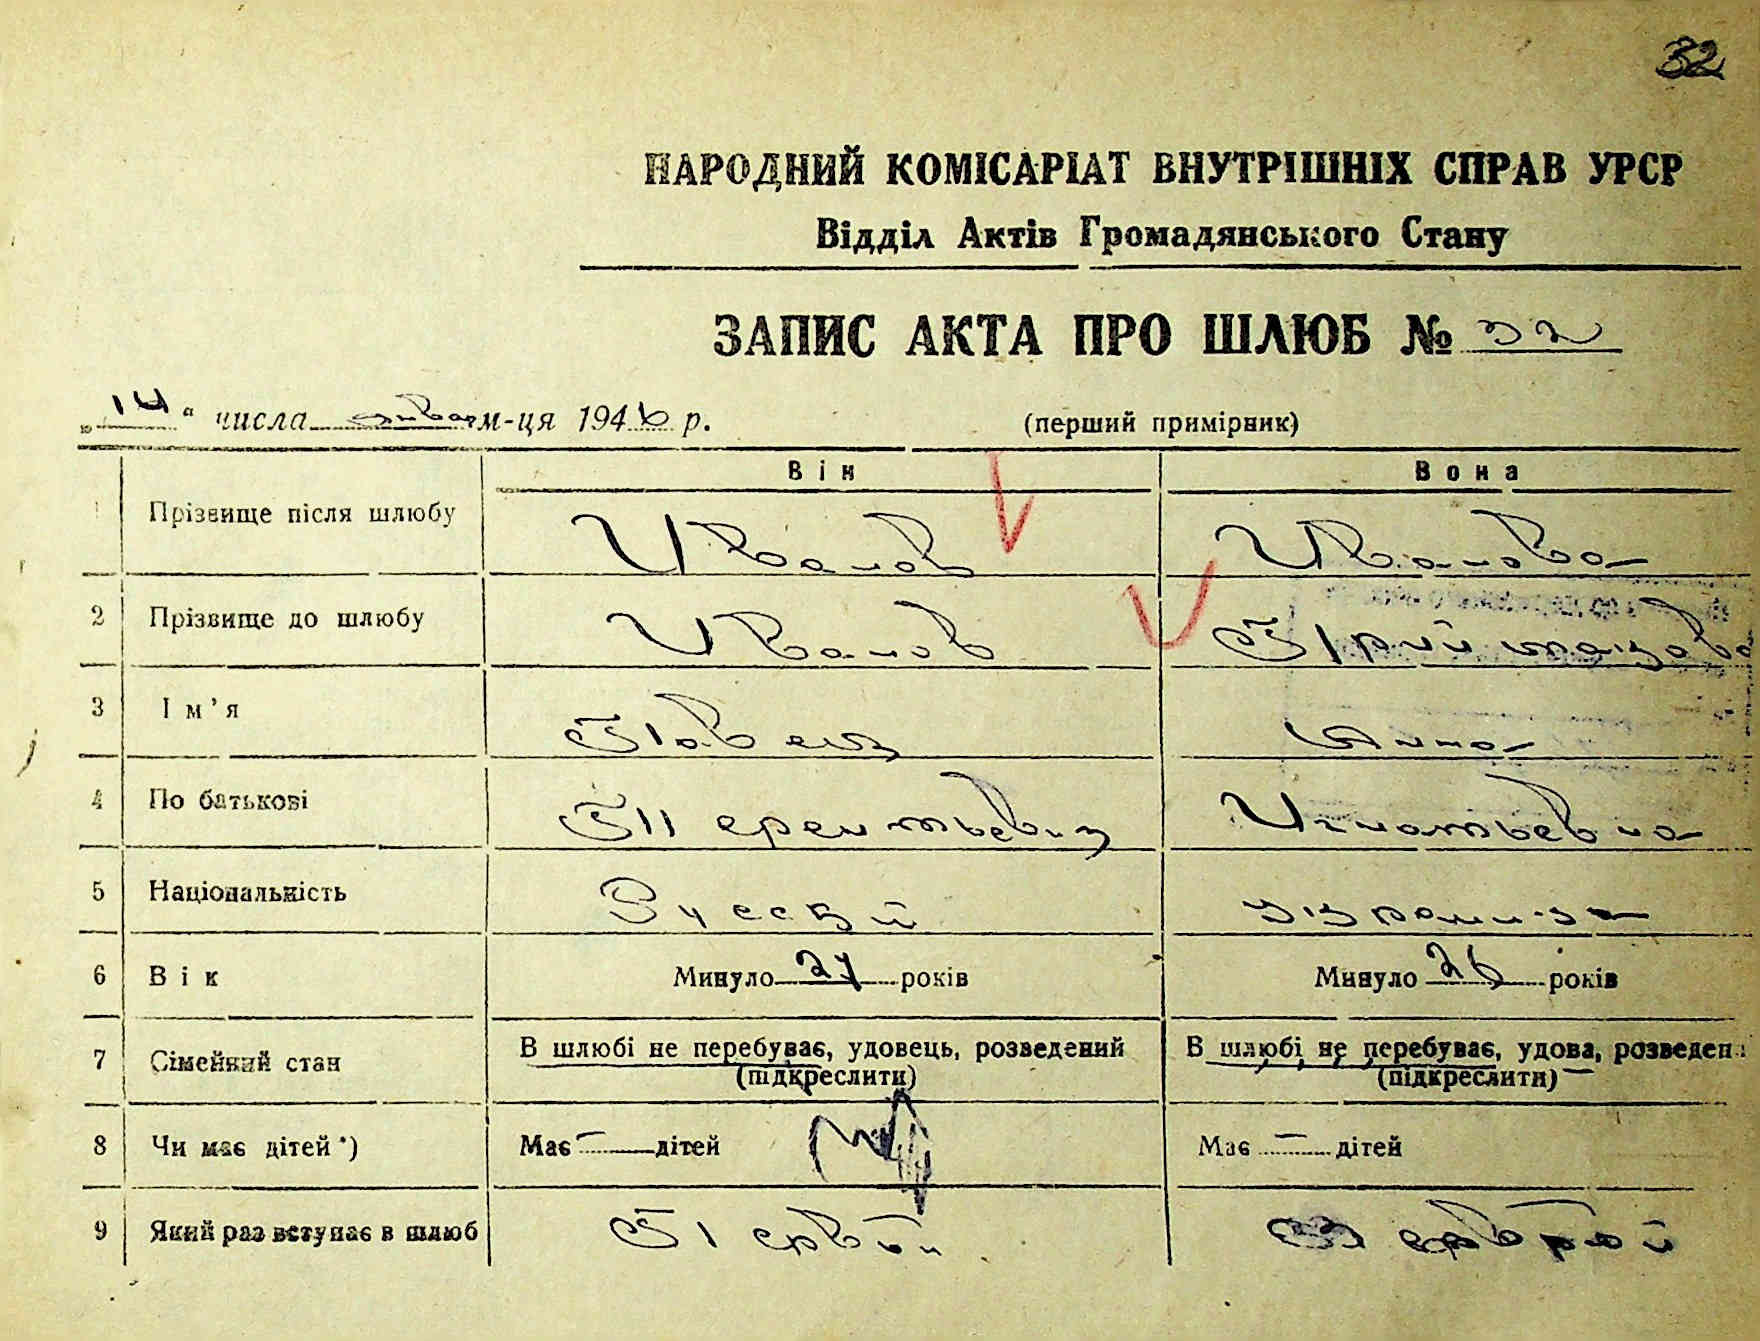 32
НАРОДНИЙ КОМІСАРІАТ ВНУТРІШНІХ СПРАВ УРСР
Відділ Актів Громадянського Стану
ЗАПИС АКТА ПРО ШЛЮБ № 32
„14“ числа января м-ця 1946 р. (перший примірник)
Він Вона
1 Прізвище після шлюбу Иванов Иванова
2 Прізвище до шлюбу Иванов
3 Ім'я Павел Анна
4 По батькові Терентьевич Игнатьевна
5 Національність Русский украинка
6 Вік Минуло 27 років Минуло 26 років
7 Сімейний стан В шлюбі не перебуває, удовець, розведений (підкреслити) В шлюбі не перебуває, удова, розведен (підкреслити)
8 Чи має дітей *) Має — дітей Має — дітей
9 Який раз вступає в шлюб Первый